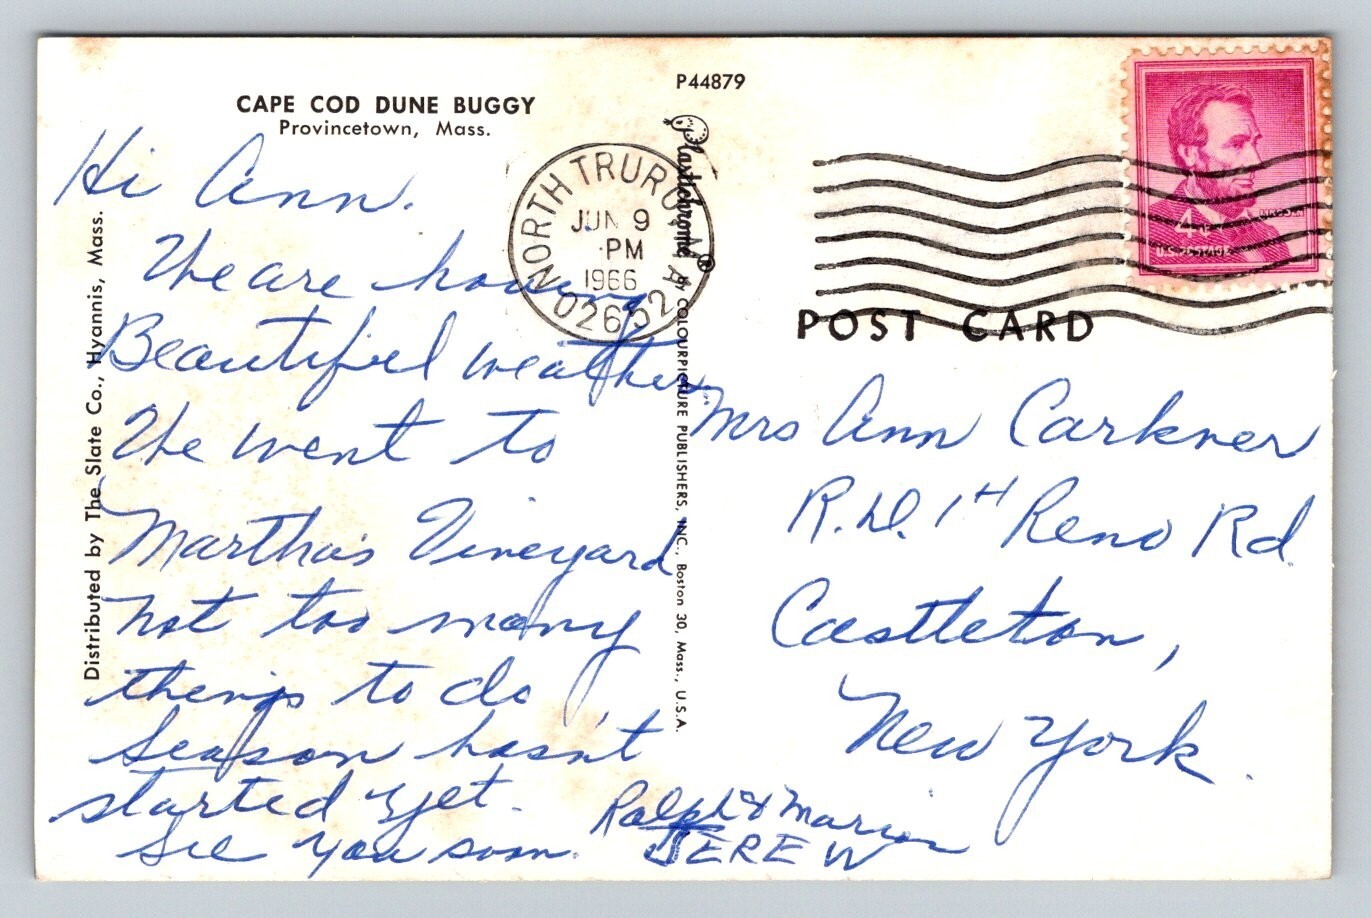 CAPE COD DUNE BUGGY
Provincetown, Mass.
P44879
Hi Ann.
We are having
Beautiful weather
We went to
Martha's Vineyard
not too many
things to do,
season hasn't
started yet.
see you soon.
Ralph & Marion
JEREW
Distributed by The Slate Co., Hyannis, Mass.
Plastichrome®
by COLOURPICTURE PUBLISHERS, INC., Boston 30, Mass., U.S.A.
NORTH TRURO, MA
JUN 9
PM
1966
02652
LINCOLN
4¢
U.S. POSTAGE
POST CARD
Mrs Ann Carkner
R.D. 1 Reno Rd.
Castleton,
New York.